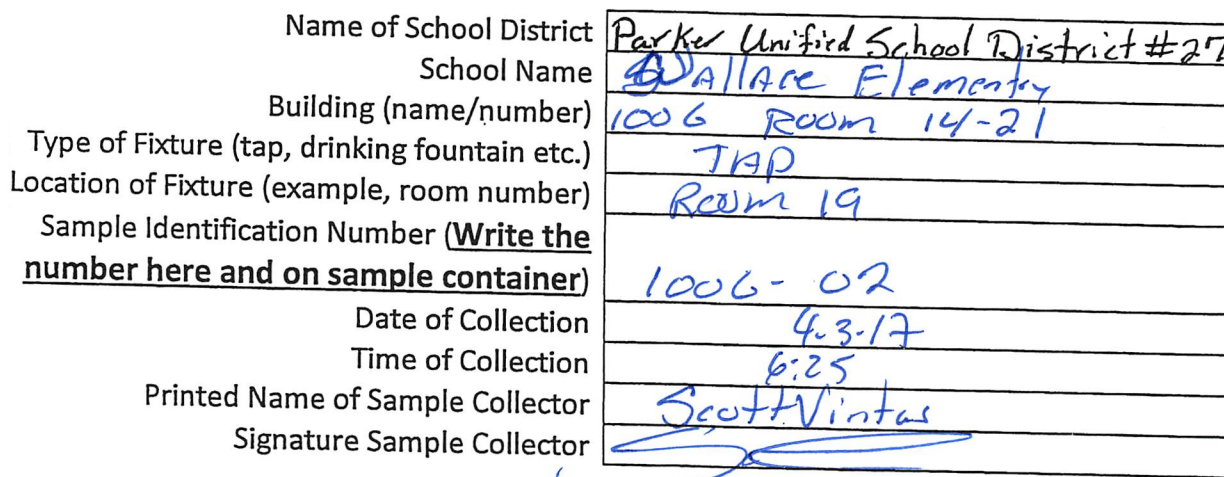 Name of School District Parker Unified School District #27
School Name Wallace Elementry
Building (name/number) 1006 Room 14-21
Type of Fixture (tap, drinking fountain etc.) TAP
Location of Fixture (example, room number) Room 19
Sample Identification Number (Write the
number here and on sample container) 1006-02
Date of Collection 4.3.17
Time of Collection 6:25
Printed Name of Sample Collector Scott Vintas
Signature Sample Collector